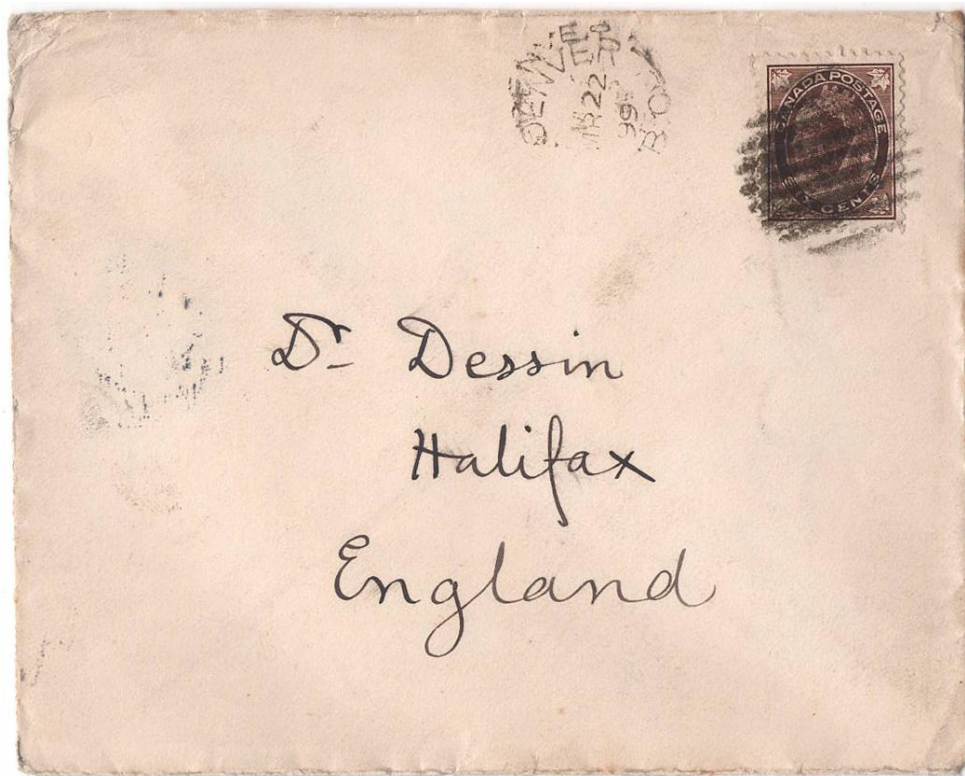 NEW
DENVER
MR 22
99
B.C
CANADA POSTAGE
SIX CENTS
Dr Dessin
Halifax
England